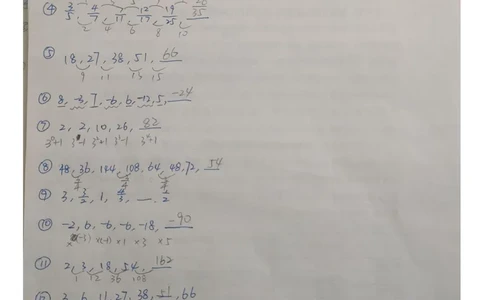 ④ 3/5, 4/7, 7/11, 12/17, 19/25, 28/35
2 4 6 8 10
⑤ 18, 27, 38, 51, 66
9 11 13 15
⑥ 8, -3, 7, -6, 6, -12, 5, -24
⑦ 2, 2, 10, 26, 82
3⁰+1 3¹-1 3²+1 3³-1 3⁴+1
⑧ 48, 36, 144, 108, 64, 48, 72, 54
⑨ 3, 3/2, 1, 3/4, __, 1/2
⑩ -2, 6, -6, -6, -18, -90
×(-3) ×(-1) ×1 ×3 ×5
⑪ 2, 3, 18, 54, 162
1 12 36 108
⑫ 3, 6, 11, 27, 38, 51, 66